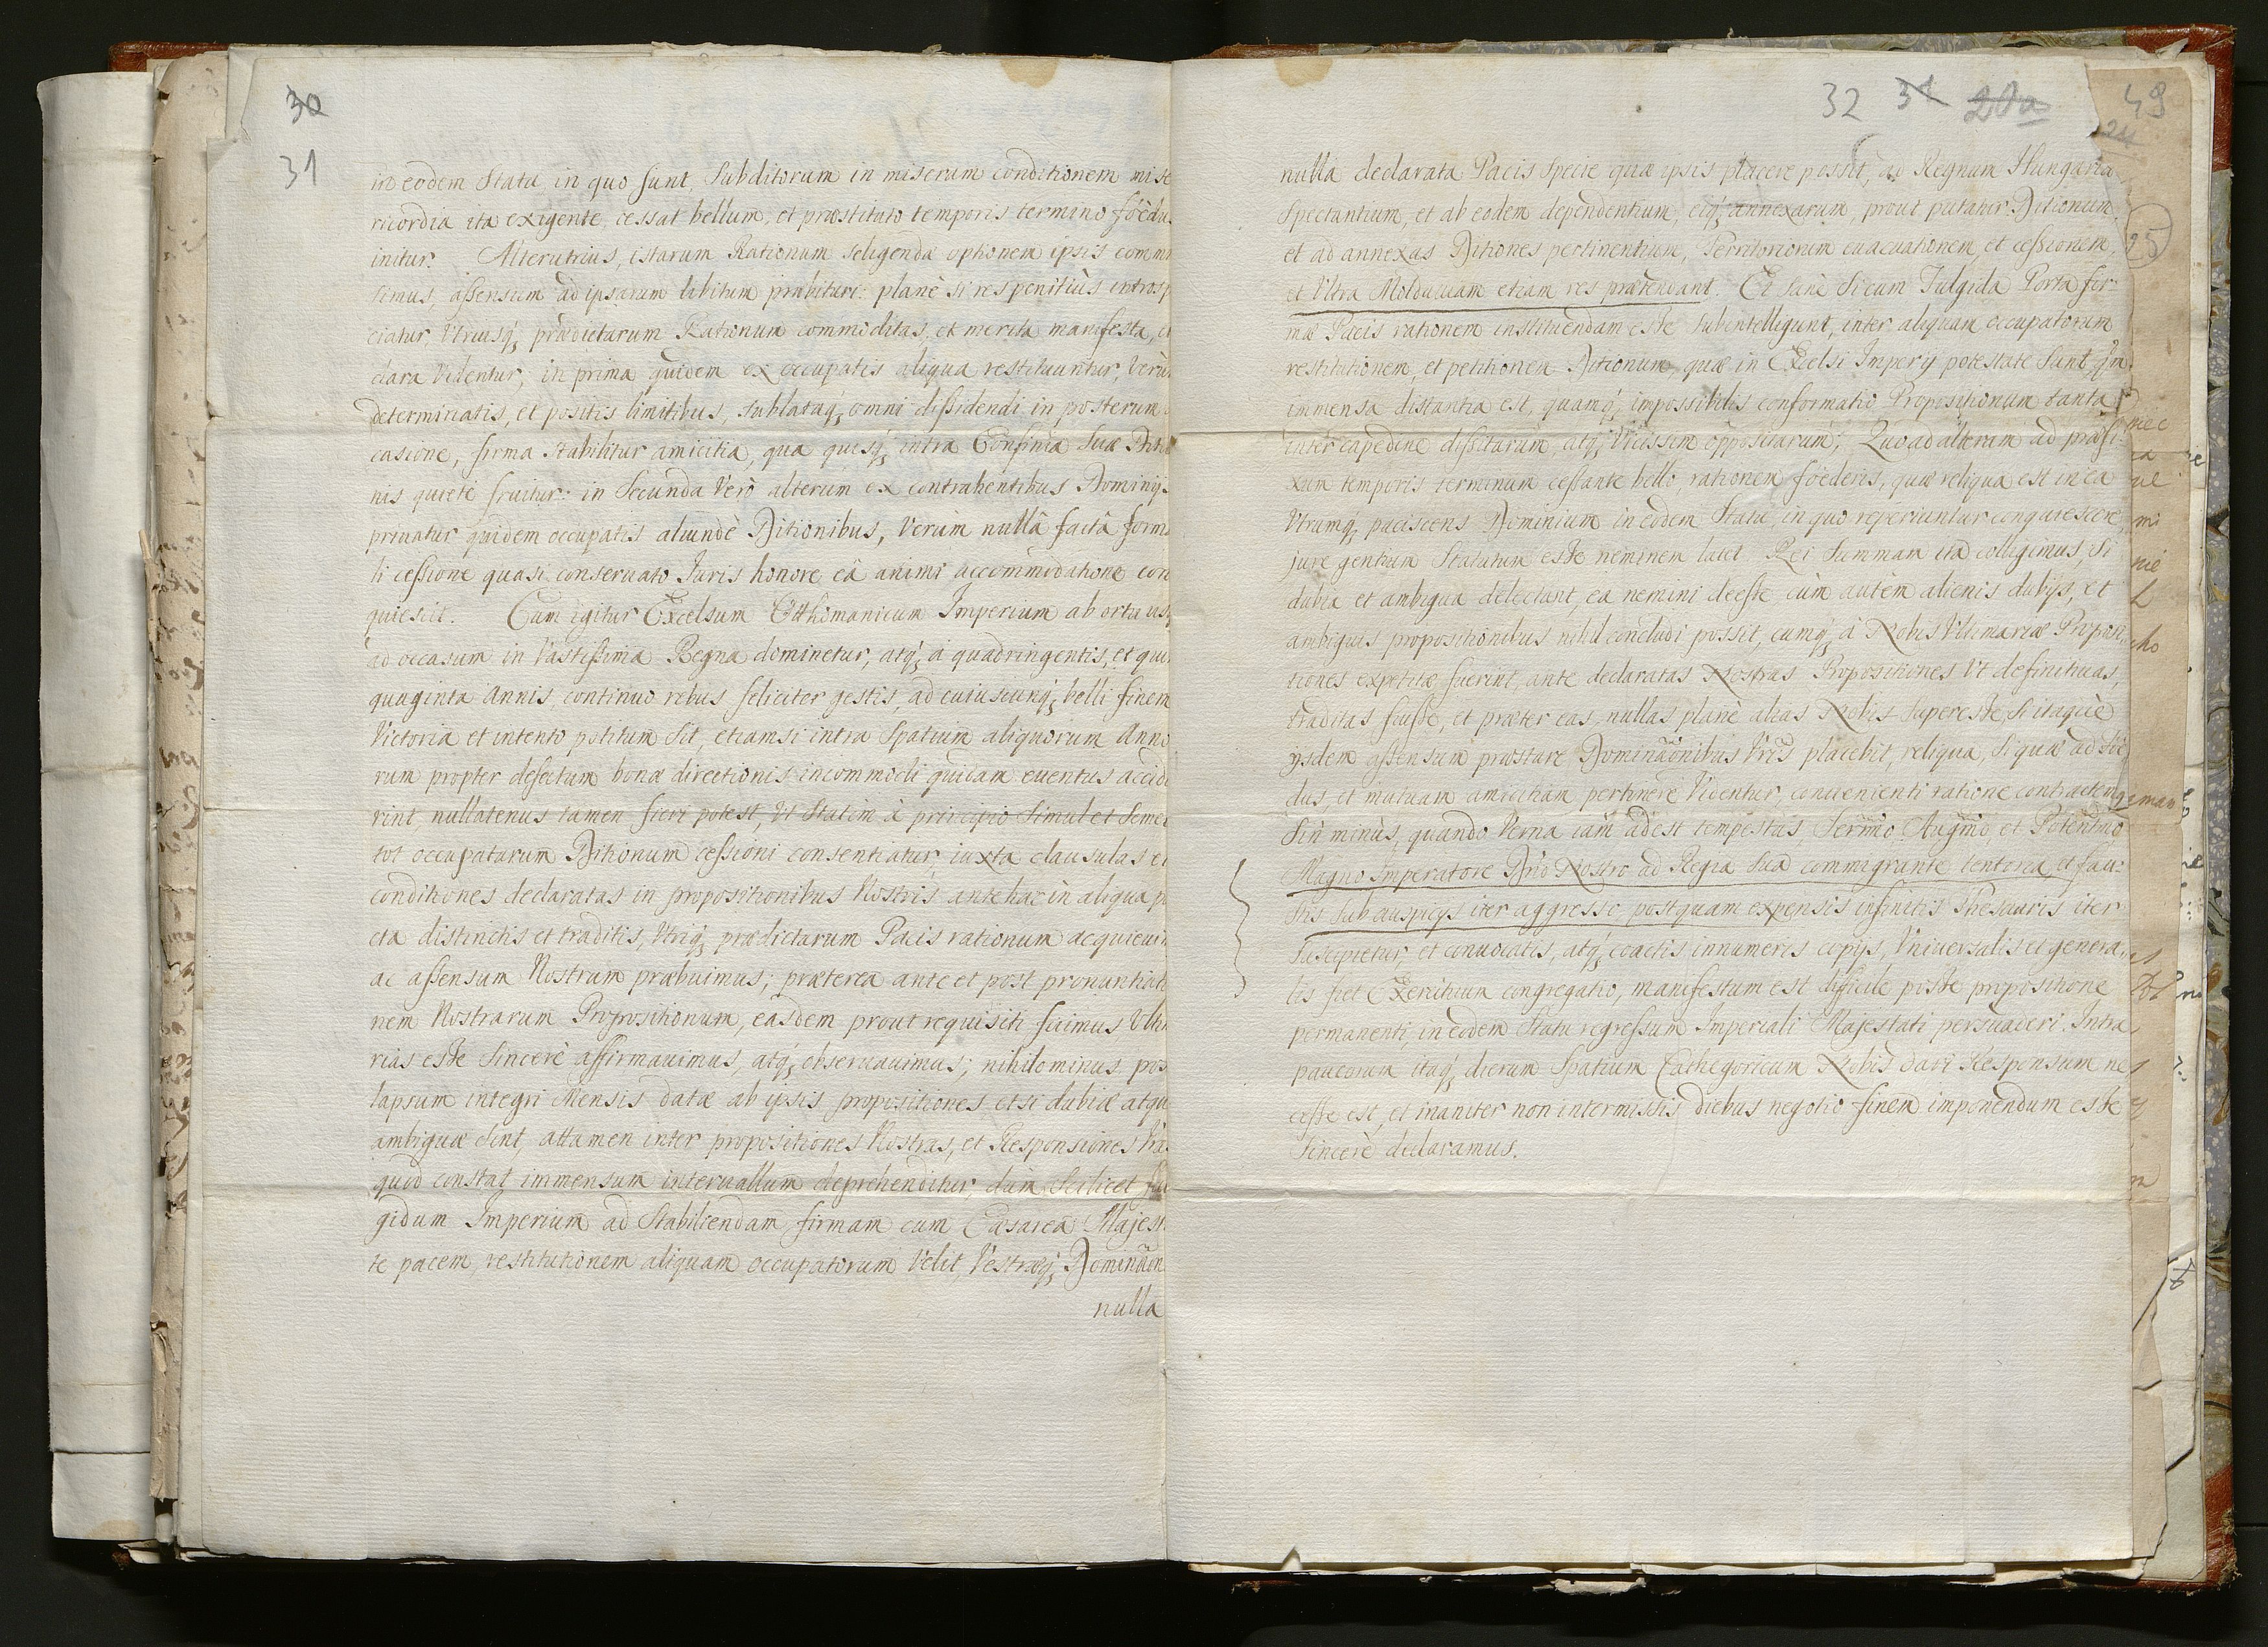 30
31
in eodem Statu in quo sunt, Subditorum in miserum conditionem mise
ricordia ita exigente, cessat bellum, et præstituto temporis termino fœdus
initur. Alterutrius, istarum Rationum seligendæ optionem ipsis commi
simus, assensum ad ipsarum libitum præbituri: planè si res penitiùs introsp
ciatur, Utriusq; prædictarum Rationum commoditas, et merita manifesta, et
clara Videntur, in prima quidem ex occupatis aliqua restituuntur, Verùm
determinatis, et positis limitibus, sublataq; omni dissidendi in posterum
casione, firma stabilitur amicitia, qua quisq; intra Confinia suæ Ditio
nis quiete fruitur: in Secunda Verò alterum ex contrahentibus Dominijs
privatur quidem occupatis aliundè Ditionibus, Verùm nullâ factâ forma
li cessione quasi conseruato Juris honore eâ animi accommodatione con
quiescit. Cum igitur Excelsum Otthomanicum Imperium ab ortu usq
ad occasum in Vastissima Regna dominetur, atq; à quadringentis, et quin
quaginta Annis, continuo rebus feliciter gestis, ad cuiuscunq; belli finem
Victoriâ et intento potitum sit, etiamsi intra Spatium aliquorum Anno
rum propter defectum bonæ directionis incommodi quidam euentus accide
rint, nullatenus tamen fieri potest, Ut Statim à principio Simul et Semel
tot occupatarum Ditionum cessioni consentiatur, iuxta clausulas et
conditiones declaratas in propositionibus Nostris antehac in aliqua p
cta distinctis et traditis, Utriq; prædictarum Pacis rationum acquieuim
ac assensum Nostrum præbuimus; præterea ante et post pronuntiatio
nem Nostrarum Propositionum, easdem prout requisiti fuimus Ultima
rias esse Sincerè affirmauimus, atq; obseruauimus; nihilominus post
lapsum integri Mensis datæ ab ipsis propositiones etsi dubiæ atque
ambiguæ sint, attamen inter propositiones Nostras, et Responsiones Vras
quod constat immensum interuallum deprehenditur, dum Scilicet ful
gidum Imperium ad Stabiliendam firmam cum Cæsarea Majesta
te pacem, restitutionem aliquam occupatorum Velit, Vestræq; Dominãon
nulla
32 31 20a
49
24
25
nulla declarata Pacis specie quæ ipsis placere possit, ad Regnum Hungariæ
Spectantium, et ab eodem dependentium, eiq; annexarum, prout putatur Ditionum,
et ad annexas Ditiones pertinentium, Territoriorum euacuationem, et cessionem,
et Ultra Molduuiam etiam res prætendant. Et sanè si cum Fulgida Porta for=
mæ Pacis rationem instituendam esse subintelligunt, inter aliquam occupatorum
restitutionem, et petitionem Ditionum, quæ in Excelsi Imperij potestate sunt, qm
immensa distantia est, quamq; impossibilis conformatio Propositionum tanta
intercapedine dissitarum, atq; Vicissim oppositarum; Quoad alteram ad præfi=
xum temporis terminum cessante bello, rationem fœderis, quæ reliqua est in ea
Utrumq; paciscens Dominium in eodem Statu, in quo reperiuntur conquiescere,
jure gentium Statutum esse neminem latet. Rei Summam ita colligimus, Si
dubia et ambigua delectant, ea nemini deesse, cùm autem alienis dubijs, et
ambiguis propositionibus nihil concludi possit, cumq; à Nobis Ultimariæ Proposi=
tiones expetitæ fuerint, ante declaratas Nostras Propositiones Ut definitiuas,
traditas fuisse, et præter eas nullas planè alias Nobis superesse, Si itaque
ijsdem assensum præstare Dominãonibus Vris placebit, reliqua, Si quæ ad fœ
dus, et mutuam amicitiam pertinere Videntur, conuenienti ratione contractentur
Sin minùs, quando Verna iam adest tempestas, Sermo, Augmo, et Potentmo
Magno Imperatore Dno Nostro ad Regia Sua commigrante tentoria, et fau=
stis sub auspicijs iter aggresse postquam expensis infinitis Thesauris iter
Suscipietur, et conuocatis, atq; coactis innumeris copijs, Vniuersalis et genera=
lis fiet Exercituum congregatio, manifestum est difficile posse propositione
permanenti in eodem Statu regressum Imperiali Majestati persuaderi. Intra
paucorum itaq; dierum Spatium Cathegoricum Nobis dari Responsum ne
cesse est, et inaniter non intermissis diebus negotio finem imponendum esse
Sincerè declaramus.